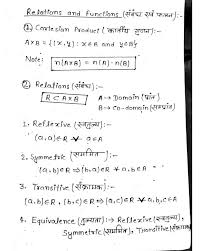 Relations and Functions (संबंध एवं फलन):-
① Cartesian Product (कार्तीय गुणन):-
A×B = {(x,y): x∈A and y∈B}
Note: n(A×B) = n(A)·n(B)
② Relations (संबंध):-
R⊂A×B A→Domain (प्रांत)
B→Co-domain (सहप्रांत)
1. Reflexive (स्वतुल्य):-
(a,a)∈R ∀ a∈A
2. Symmetric (सममित):-
(a,b)∈R ⇒ (b,a)∈R ∀ a,b∈A
3. Transitive (संक्रामक):-
(a,b)∈R, (b,c)∈R ⇒ (a,c)∈R ∀ a,b,c∈A
4. Equivalence (तुल्यता):→ Reflexive (स्वतुल्य),
Symmetric (सममित), Transitive (संक्रामक)